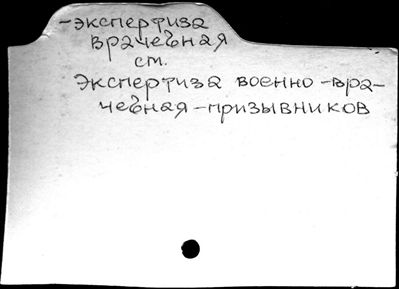 -экспертиза
врачебная
см.
Экспертиза военно-вра-
чебная-призывников